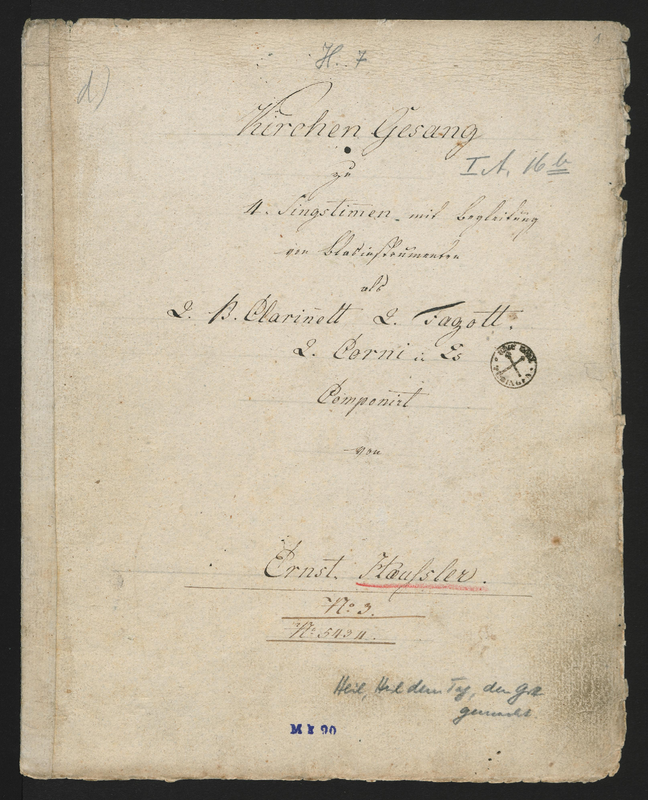 H. 7
d)
Kirchen Gesang
I A, 16 b
zu
4. Singstim̄en mit Begleitung
von Blasinstrumenten
als
2. B. Clarinett 2. Fagott.
2. Corni in Es
Componirt
von
Ernst. Haeuſsler.
No 3.
No 5434.
Heil, Heil dem Tag, den Gott
gemacht
M I 90